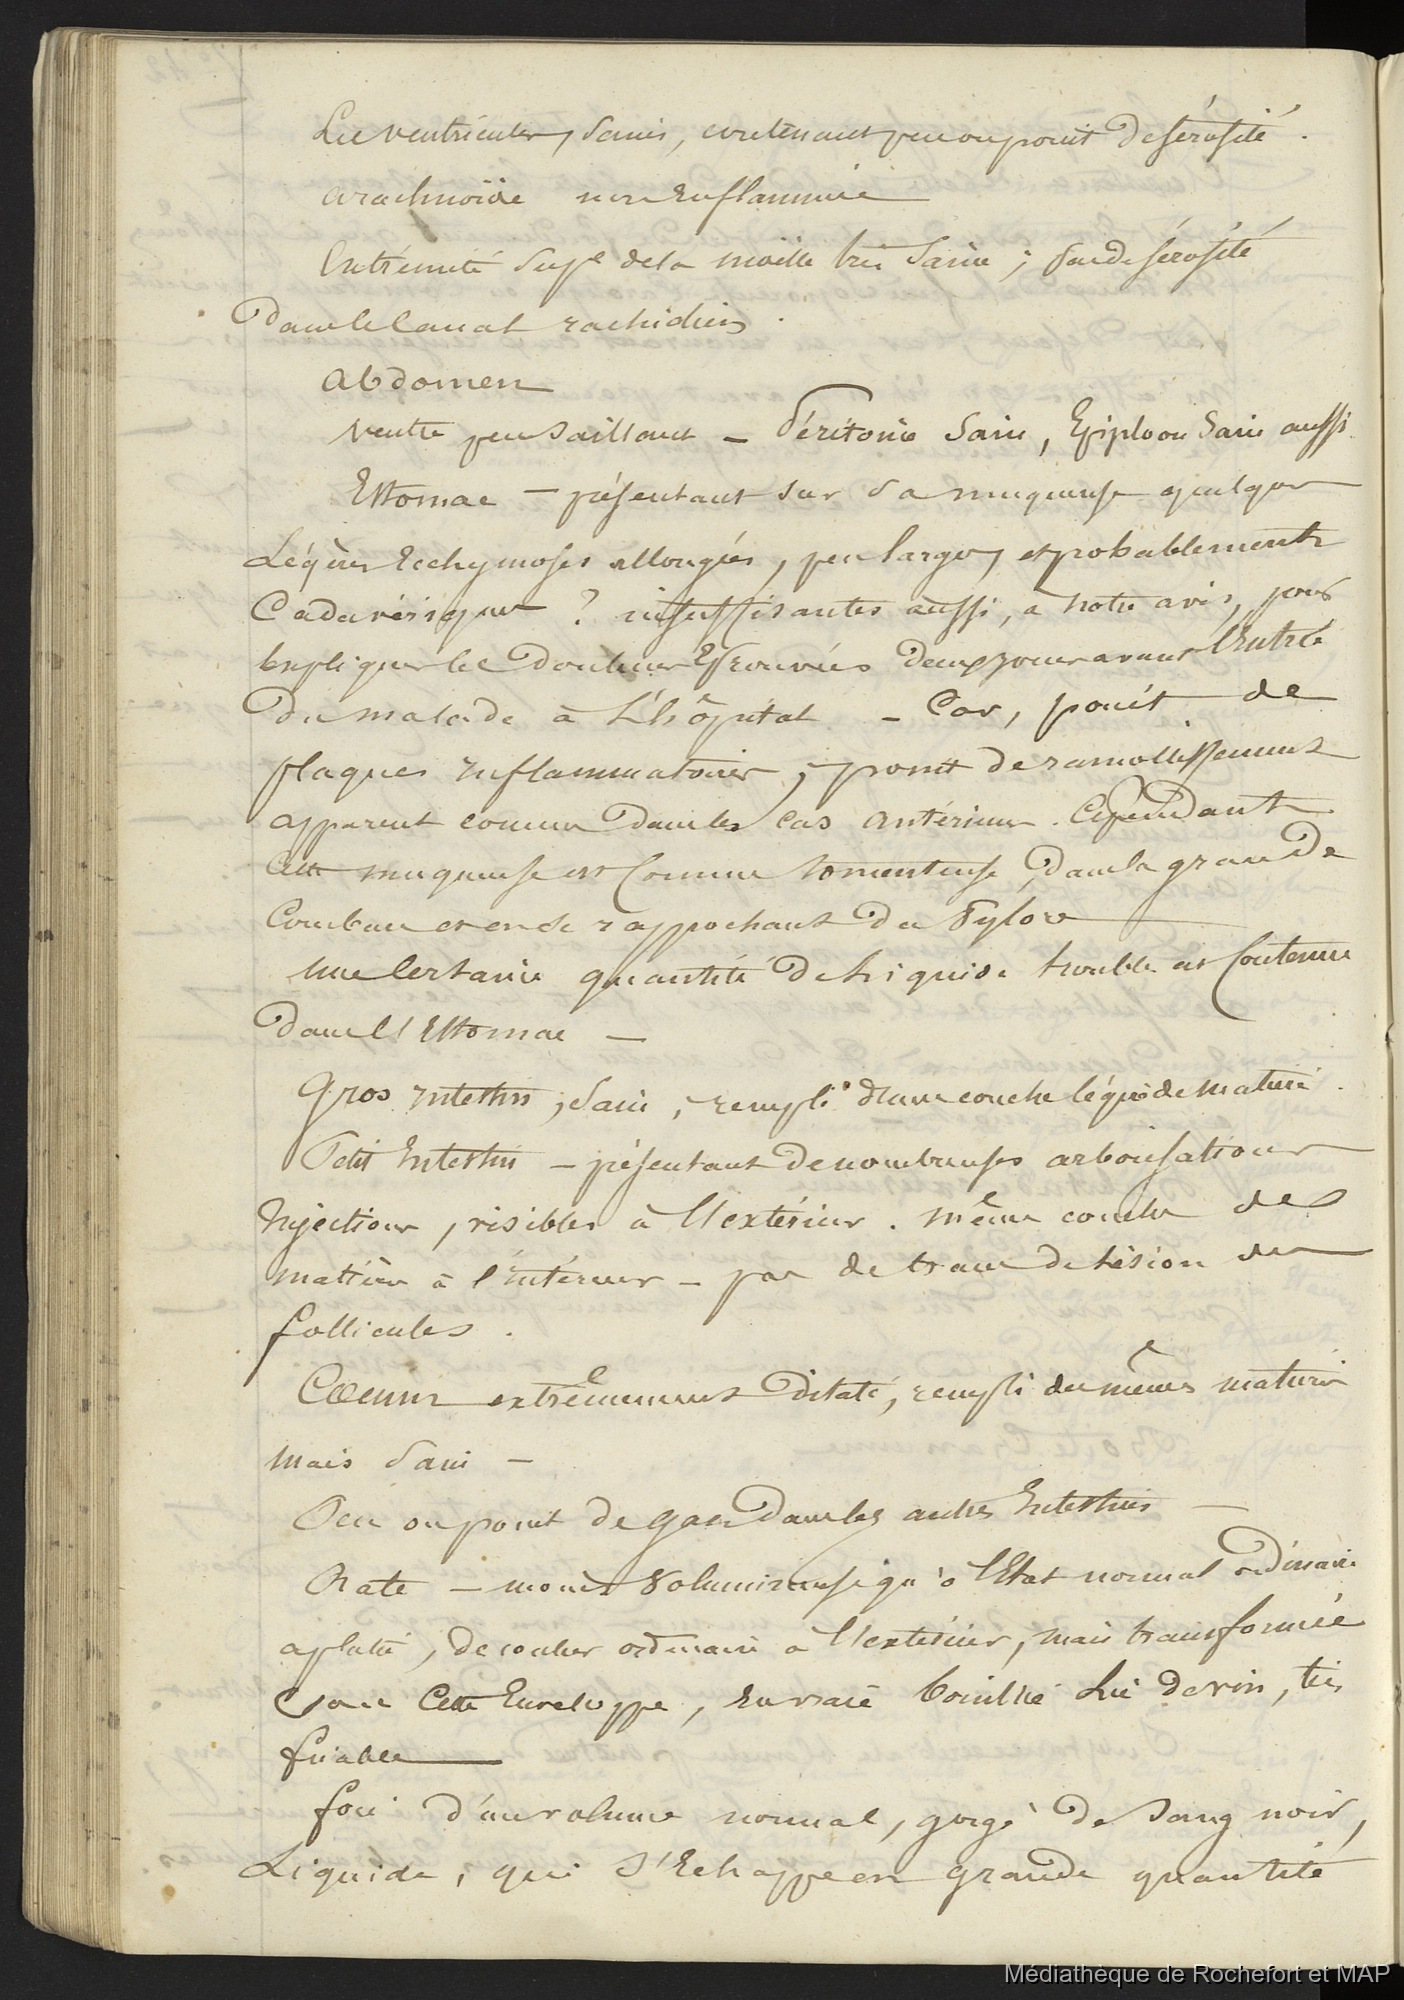 Les ventricules, sains, contenant peu ou point de sérosité.
arachnoïde non enflammée
Extrémité supre de la moëlle très saine ; peu de sérosité
Dans le canal rachidien.
Abdomen
Ventre peu saillant — Péritoine sain, Epiploon sain aussi
Estomac — présentant sur sa muqueuse quelques
Légères Ecchymoses allongées, peu larges, et probablement
Cadavériques ? insuffisantes aussi, à notre avis, pour
Expliquer les Douleurs Eprouvées deux jours avant l'Entrée
Du malade à L'hôpital — Car, point de
plaques inflammatoires, point de ramollissement
apparent comme dans les cas antérieurs. Cependant
Cette muqueuse est comme tomenteuse, Dans la grande
Courbure et en se rapprochant du Pylore
Une Certaine quantité de Liquide trouble est Contenue
Dans l'Estomac —
Gros Intestin, sain, rempli d'une couche légère de matière.
Petit Intestin — présentant de nombreuses arborisations
Injections, visibles à l'extérieur. même couche de
matière à l'intérieur — pas de trace de Lésion des
follicules.
Coecum extrêmement Dilaté, rempli des mêmes matières
mais sain —
Peu ou point de gaz Dans les autres Intestins —
Rate — moins volumineuse qu'à l'Etat normal ordinaire
aplatie, de couleur ordinaire à l'extérieur, mais transformée
sous Cette Enveloppe, En vraie bouillie Lie de vin, très
friable
foie d'un volume normal, gorgé De sang noir,
Liquide, qui s'Echappe en grande quantité
Médiathèque de Rochefort et MAP